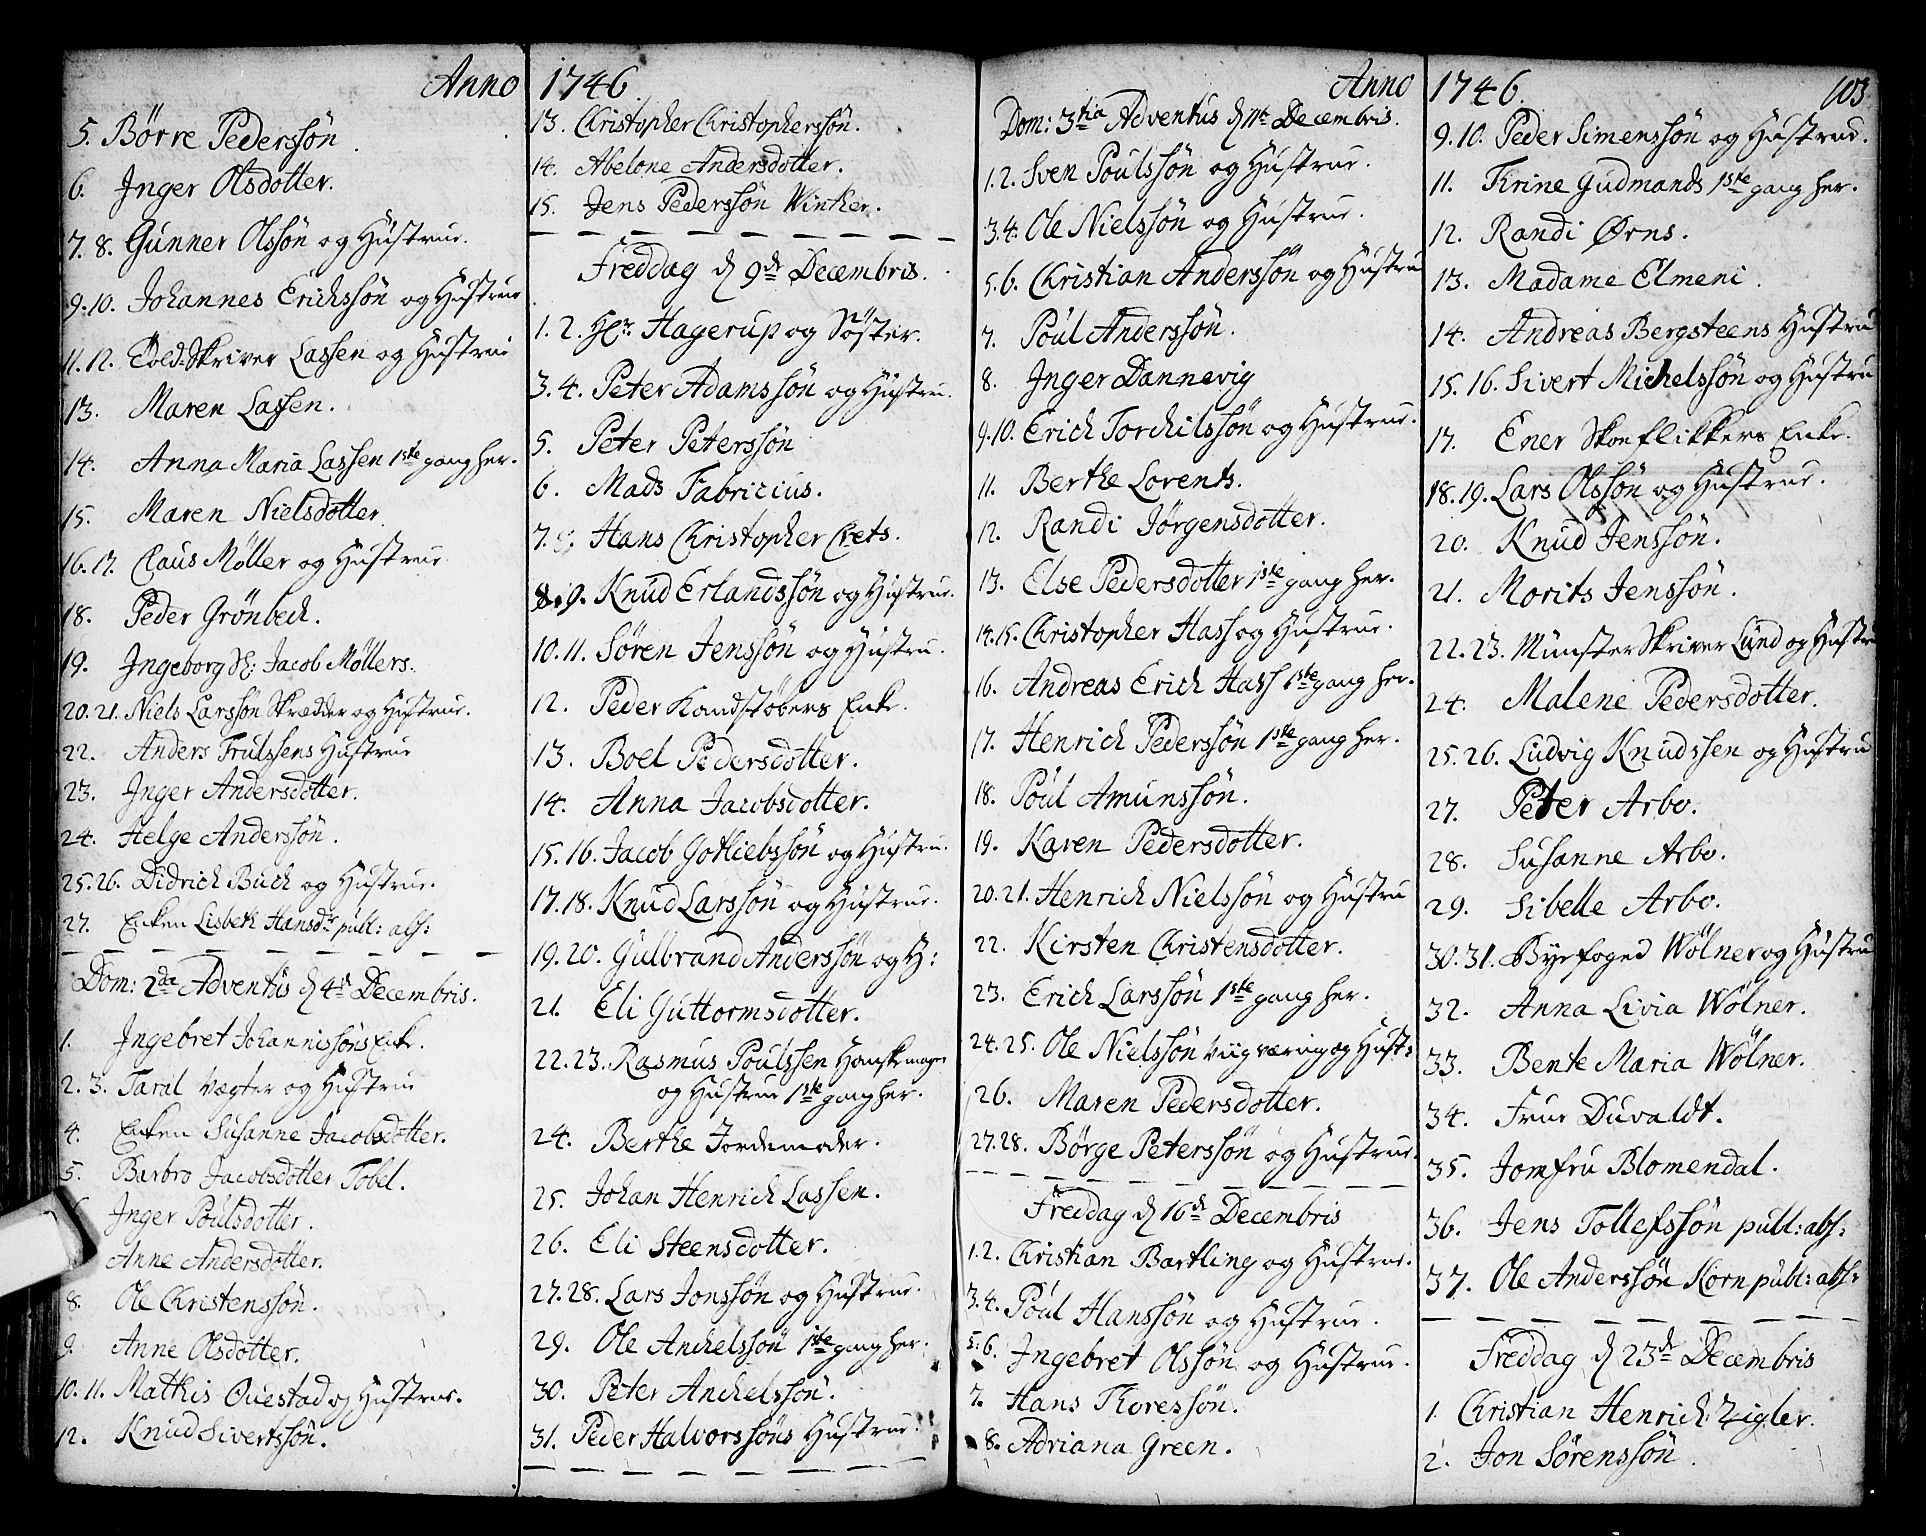 Anno
5. Börre Pederssön.
6. Inger Olsdotter.
7. 8. Gunner Olssön og Hustrue.
9. 10. Johannes Erichssön og Hustrue
11. 12. Told-Skriver Lassen og Hustrue
13. Maren Lassen.
14. Anna Maria Lassen 1ste gang her.
15. Maren Nielsdotter.
16. 17. Claus Möller og Hustrue
18. Peder Grönbech.
19. Ingeborg Sl: Jacob Möllers.
20. 21. Niels Larssön Skrædder og Hustrue.
22. Anders Trulssens Hustrue
23. Inger Andersdotter.
24. Helge Anderssön.
25. 26. Didrich Buch og Hustrue.
27. Enken Lisbeth Hansdr publ: abs:
Dom: 2da Adventus d 4de Decembris.
1. Ingebret Johannissöns Enke.
2. 3. Taril Vægter og Hustrue
4. Enken Susanne Jacobsdotter.
5. Barbro Jacobsdotter Tobel.
Inger Poulsdotter.
Anne Andersdotter.
8. Ole Christenssön.
9. Anne Olsdotter.
10. 11. Mathis Ouestad og Hustrue.
12. Knud Sivertssön.
1746
13. Christopher Christopherssön.
14. Abelone Andersdotter.
15. Jens Pederssön Winther.
Freddag d 9de Decembris.
1. 2. Hr. Hagerup og Söster.
3. 4. Peter Adamssön og Hustru.
5. Peter Peterssön
6. Mads Fabricius.
7. Hans Christopher Crets.
8. 9. Knud Erlandssön og Hustrue.
10. 11. Sören Jenssön og Hustru.
12. Peder Kandstöbers Enke.
13. Boel Pedersdotter.
14. Anna Jacobsdotter.
15. 16. Jacob Gotliebssön og Hustru.
17. 18. Knud Larssön og Hustrue.
19. 20. Gulbrand Anderssön og H:
21. Eli Guttormsdotter.
22. 23. Rasmus Poulssen Handskmager
og Hustrue 1ste gang her.
24. Berthe Jordemoder.
25. Johan Henrich Lassen.
26. Eli Steensdotter.
27. 28. Lars Jonssön og Hustrue.
29. Ole Anchelssön 1ste gang her.
30. Peter Anchelssön.
31. Peder Halvorssöns Hustrue.
Anno
Dom: 3tia Adventus d 11te Decembris.
1. 2. Sven Poulssön og Hustrue.
3. 4. Ole Nielssön og Hustrue.
5. 6. Christian Anderssön og Hustru
7. Poul Anderssön.
8. Inger Dannevig
9. 10. Erich Torchilssön og Hustrue.
11. Berthe Lorents.
12. Randi Jörgensdotter.
13. Else Pedersdotter 1ste gang her.
14. 15. Christopher Hass og Hustrue.
16. Andreas Erich Hass 1ste gang her.
17. Henrich Pederssön 1ste gang her.
18. Poul Amunssön.
19. Karen Pedersdotter.
20. 21. Henrich Nielssön og Hustru
22. Kirsten Christensdotter.
23. Erich Larssön 1ste gang her.
24. 25. Ole Nielssön Viigværing og Hust:
26. Maren Pedersdotter.
27. 28. Börge Peterssön og Hustrue.
Freddag d 16de Decembris
1. 2. Christian Bartling og Hustrue.
3. 4. Poul Hanssön og Hustrue.
5. 6. Ingebret Olssön og Hustrue.
7. Hans Thoressön.
8. Adriana Green.
1746. 103
9. 10. Peder Simenssön og Hustrue.
11. Trine Gudmands 1ste gang her.
12. Randi Örns.
13. Madame Elmeni.
14. Andreas Bergsteens Hustru
15. 16. Sivert Michelssön og Hustru
17. Ener Skoeflikkers Enke.
18. 19. Lars Olssön og Hustrue.
20. Knud Jenssön.
21. Morits Jenssön.
22. 23. Münster Skriver Lund og Hustru
24. Malene Pedersdotter.
25. 26. Ludvig Knudssen og Hustru
27. Peter Arbo.
28. Susanne Arbo.
29. Sibelle Arbo.
30. 31. Byefoged Wölner og Hustru
32. Anna Livia Wölner.
33. Bente Maria Wölner.
34. Frue Duvaldt.
35. Jomfru Blomendal.
36. Jens Tollefssön publ: abs:
37. Ole Anderssön Korn publ: abs:
Freddag d 23de Decembris
1. Christian Henrich Zigler.
2. Jon Sörenssön.